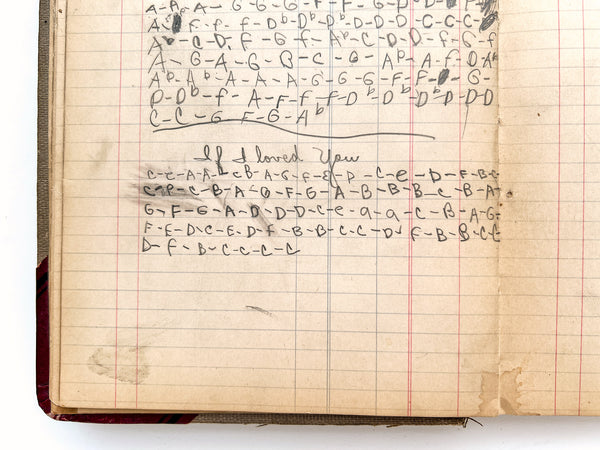 A-A-A-G-G-G-F-F-G-D-D
A F-F-F-F-Db-Db-Db-D-D-D-C-C-C
Ab-C-D-F-G-F-Ab-C-D-D-F-G-F
A-G-A-G-B-C-G-Ab-A-F-D-Ab
Ab-Ab-A-A-A-G-G-G-F-F-G-
D-Db-F-A-F-F-F-Db-D-Db-D-D
C-C-G-F-G-Ab
If I loved You
C-C-A-A-CB-A-G-F-E-D-C-e-D-F-B-C
C-P-C-B-A-G-F-G-A-B-B-B-C-B-A-
G-F-G-A-D-D-D-C-e-a-a-C-B-A-G-
F-E-D-C-E-D-f-B-B-C-C-D-F-B-B-C-C
D-f-B-C-C-C-C